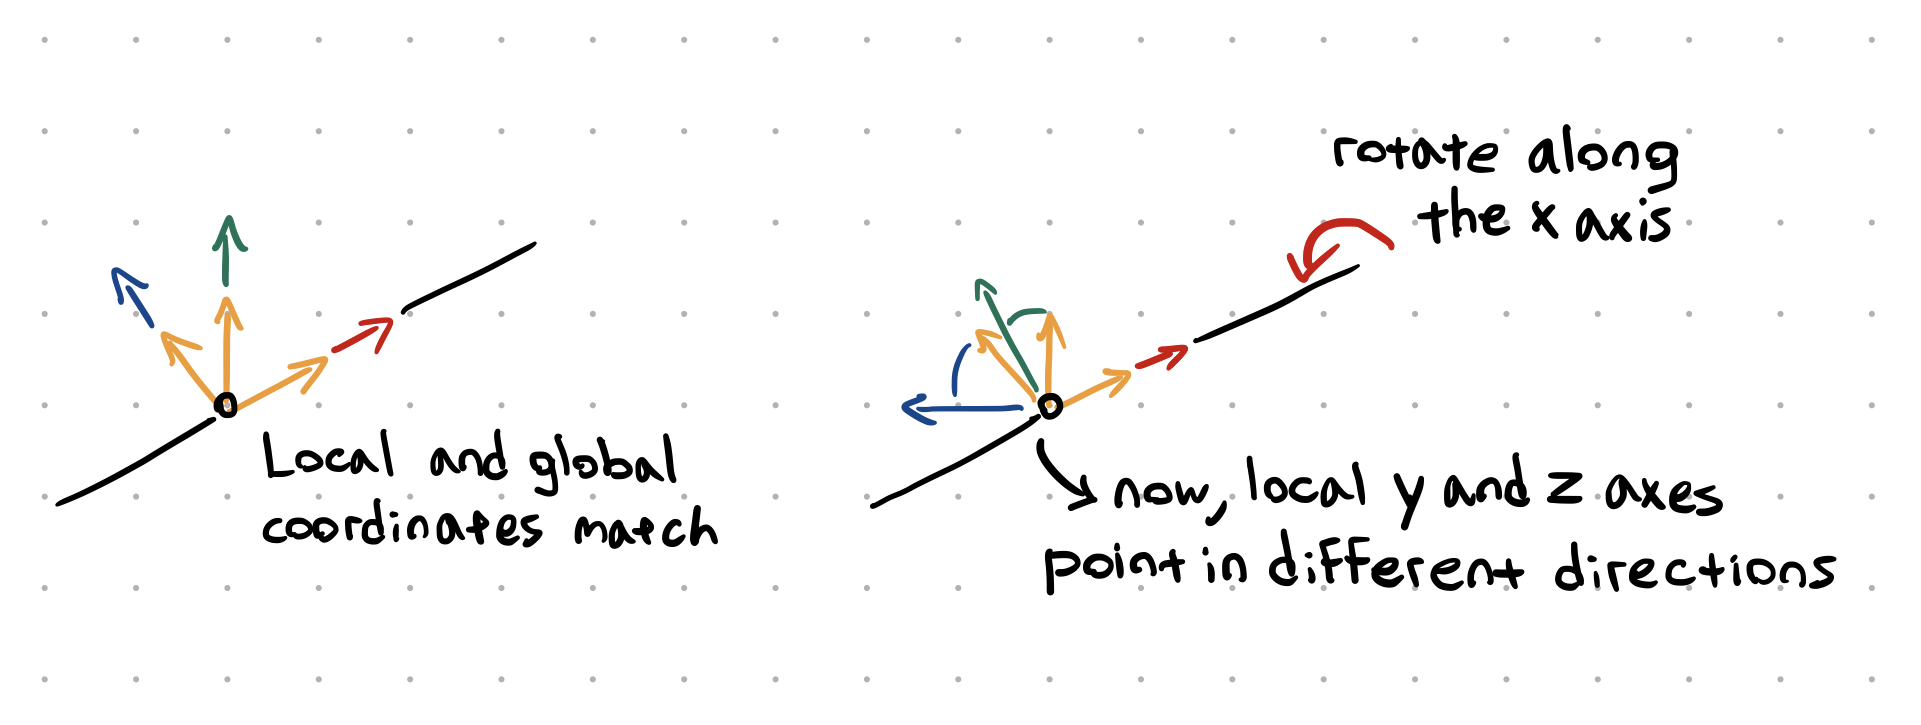 Local and global
coordinates match
rotate along
the x axis
now, local y and z axes
point in different directions